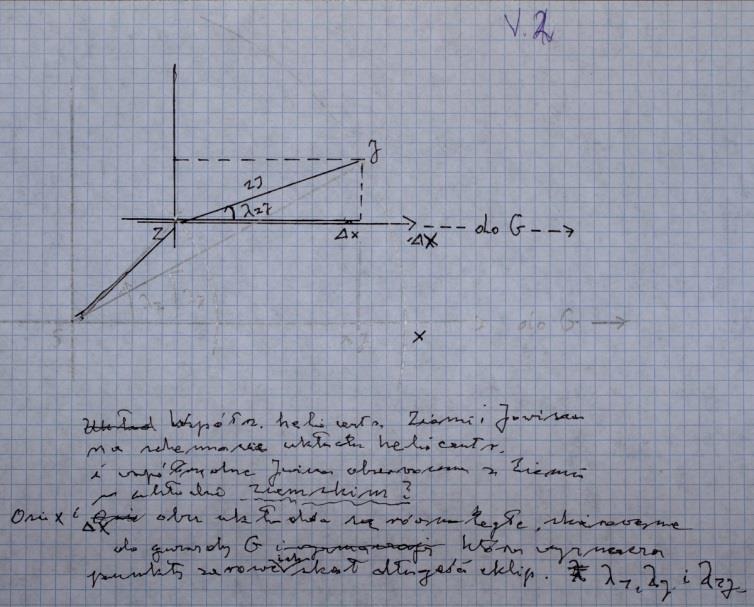 V.2
J
ZJ
λZJ
Z
Δx
ΔX
do G
S
λZ
do G
x
Układ Współrz. heliocentr. Ziemi i Jowisza
na schemacie układu heliocentr.
i współrzędne Jowisza obserwowane z Ziemi
w układzie ziemskim?
Osie x i Osie obu układów są równoległe, skierowane
Δx
do gwiazdy G która wyznacza
punkt zerowy skal długości eklip. λZ, λJ i λZJ